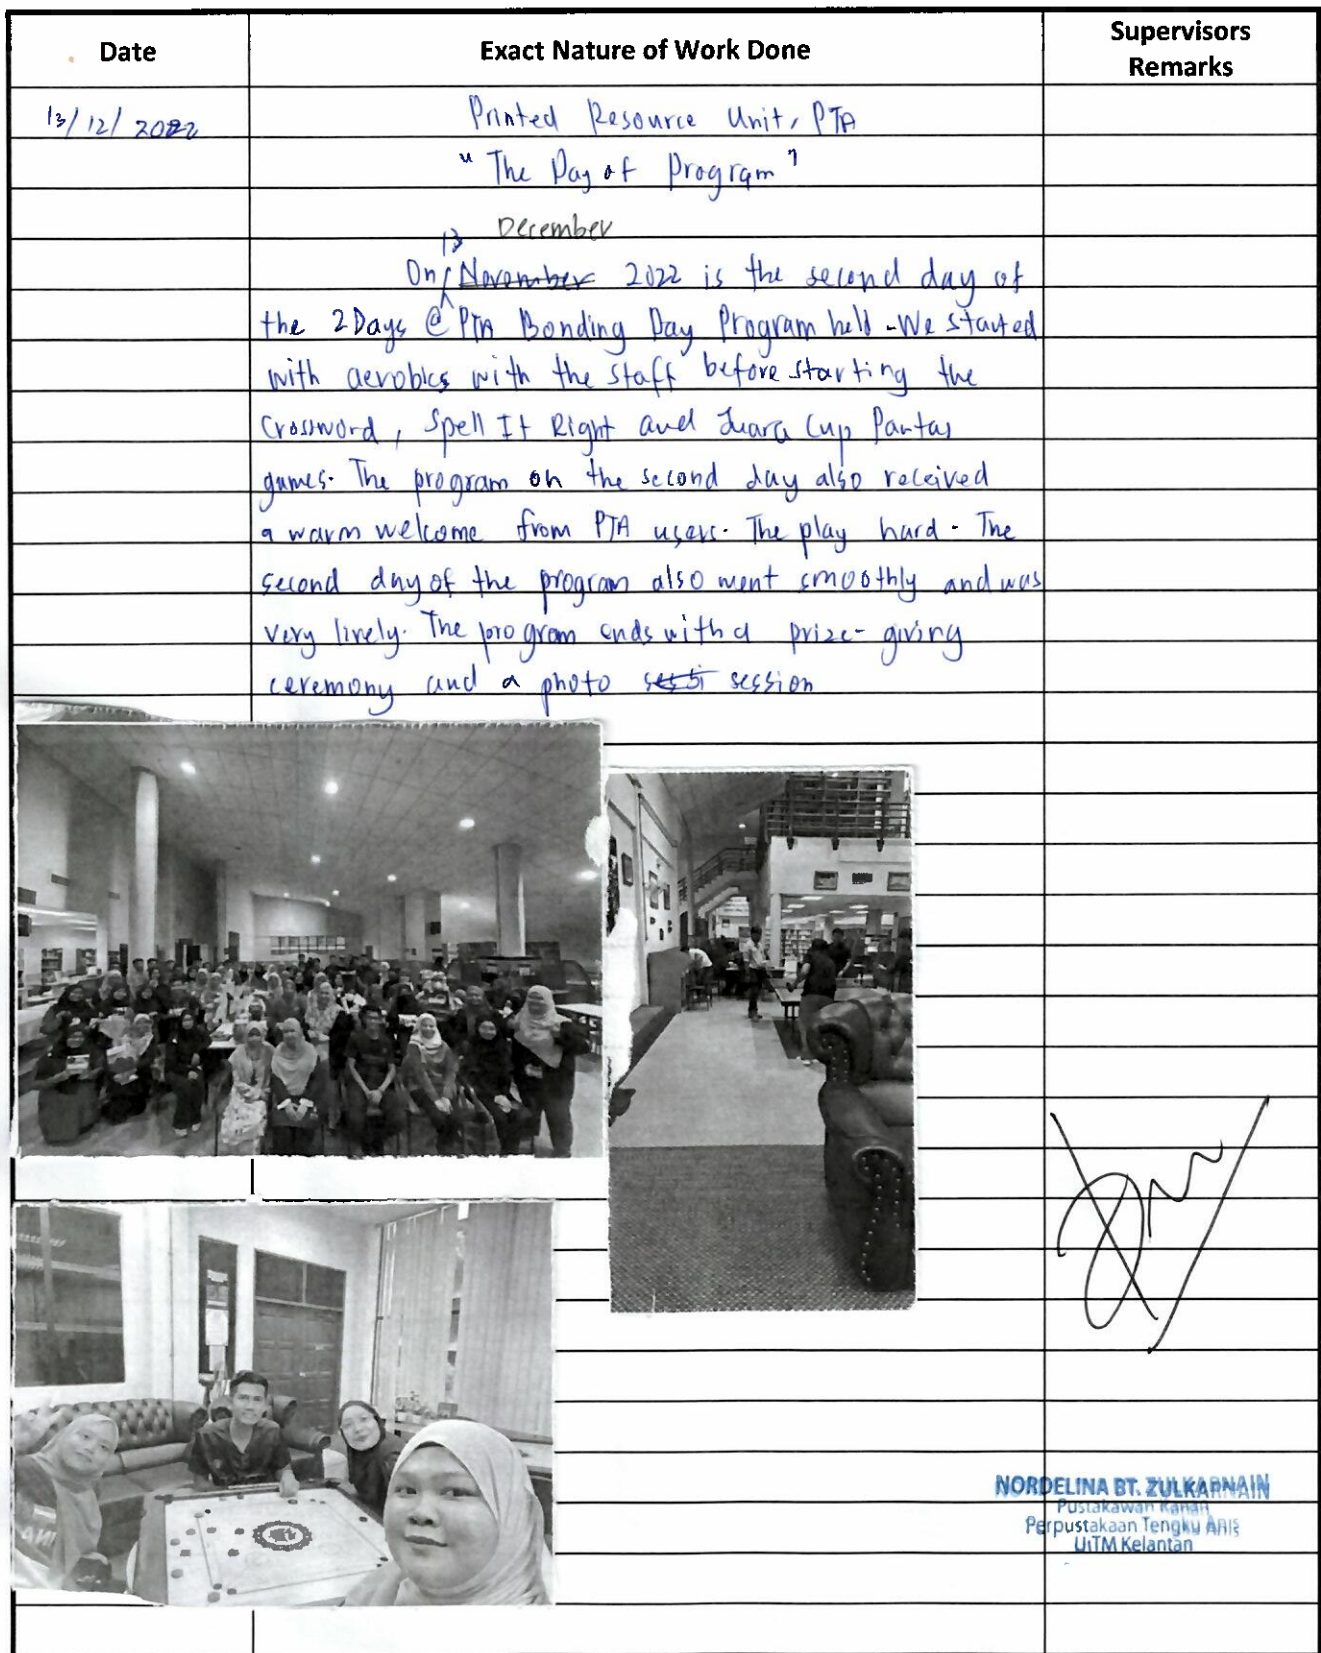 Date
Exact Nature of Work Done
Supervisors
Remarks
13/12/2022
Printed Resource Unit, PTA
"The Day of Program"
13 December
On November 2022 is the second day of
the 2Days @ PTA Bonding Day Program held. We started
with aerobics with the staff before starting the
Crossword, Spell It Right and Juara Cup Pantas
games. The program on the second day also received
a warm welcome from PTA users. The play hard. The
second day of the program also went smoothly and was
very lively. The program ends with a prize-giving
ceremony and a photo session
NORDELINA BT. ZULKARNAIN
Pustakawan Kanan
Perpustakaan Tengku ANIS
UiTM Kelantan